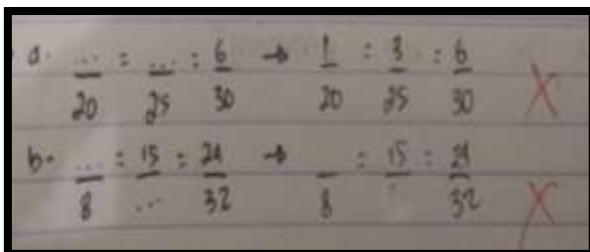 a. .../20 = .../25 = 6/30 → 1/20 = 3/25 = 6/30 X
b. .../8 = 15/... = 24/32 → /8 = 15/ = 24/32 X